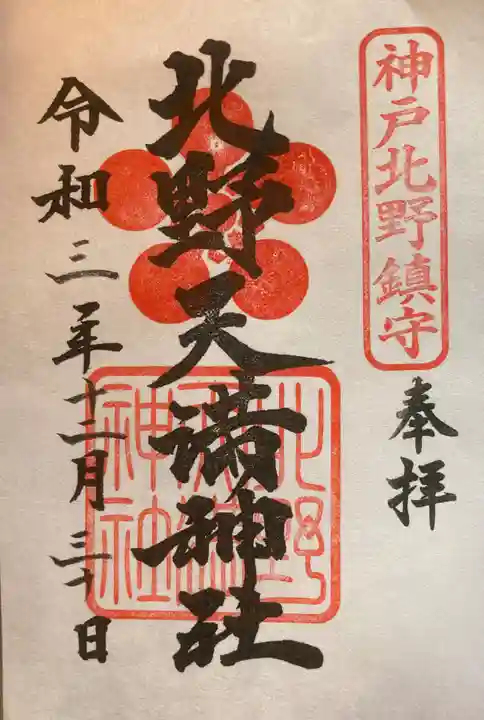 神戸北野鎮守
奉拝
北野天満神社
北野天満神社
令和三年十二月三十日